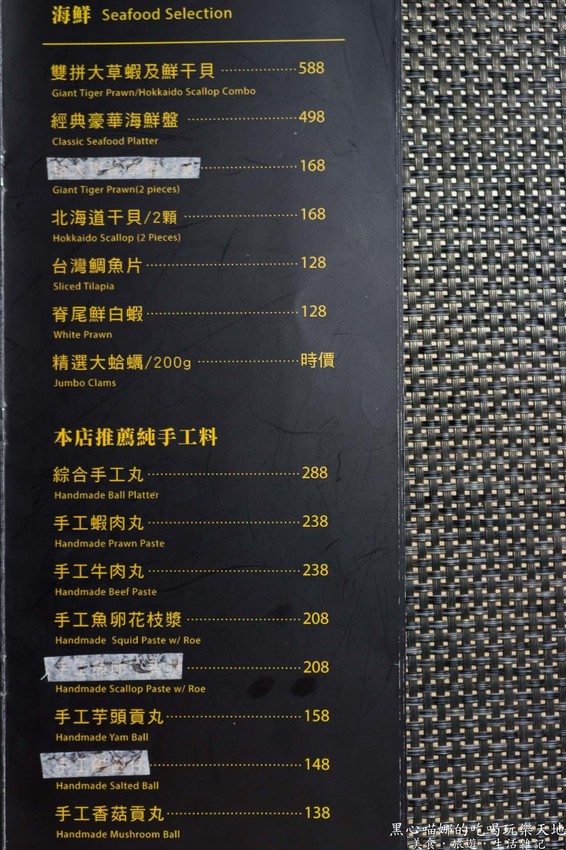 海鮮 Seafood Selection
雙拼大草蝦及鮮干貝 ⋯⋯⋯⋯ 588
Giant Tiger Prawn/Hokkaido Scallop Combo
經典豪華海鮮盤 ⋯⋯⋯⋯ 498
Classic Seafood Platter
⋯⋯⋯⋯ 168
Giant Tiger Prawn(2 pieces)
北海道干貝/2顆 ⋯⋯⋯⋯ 168
Hokkaido Scallop (2 Pieces)
台灣鯛魚片 ⋯⋯⋯⋯ 128
Sliced Tilapia
脊尾鮮白蝦 ⋯⋯⋯⋯ 128
White Prawn
精選大蛤蠣/200g ⋯⋯⋯⋯ 時價
Jumbo Clams
本店推薦純手工料
綜合手工丸 ⋯⋯⋯⋯ 288
Handmade Ball Platter
手工蝦肉丸 ⋯⋯⋯⋯ 238
Handmade Prawn Paste
手工牛肉丸 ⋯⋯⋯⋯ 238
Handmade Beef Paste
手工魚卵花枝漿 ⋯⋯⋯⋯ 208
Handmade Squid Paste w/ Roe
⋯⋯⋯⋯ 208
Handmade Scallop Paste w/ Roe
手工芋頭貢丸 ⋯⋯⋯⋯ 158
Handmade Yam Ball
⋯⋯⋯⋯ 148
Handmade Salted Ball
手工香菇貢丸 ⋯⋯⋯⋯ 138
Handmade Mushroom Ball
黑心喵娜的吃喝玩樂天地
美食·旅遊·生活雜記